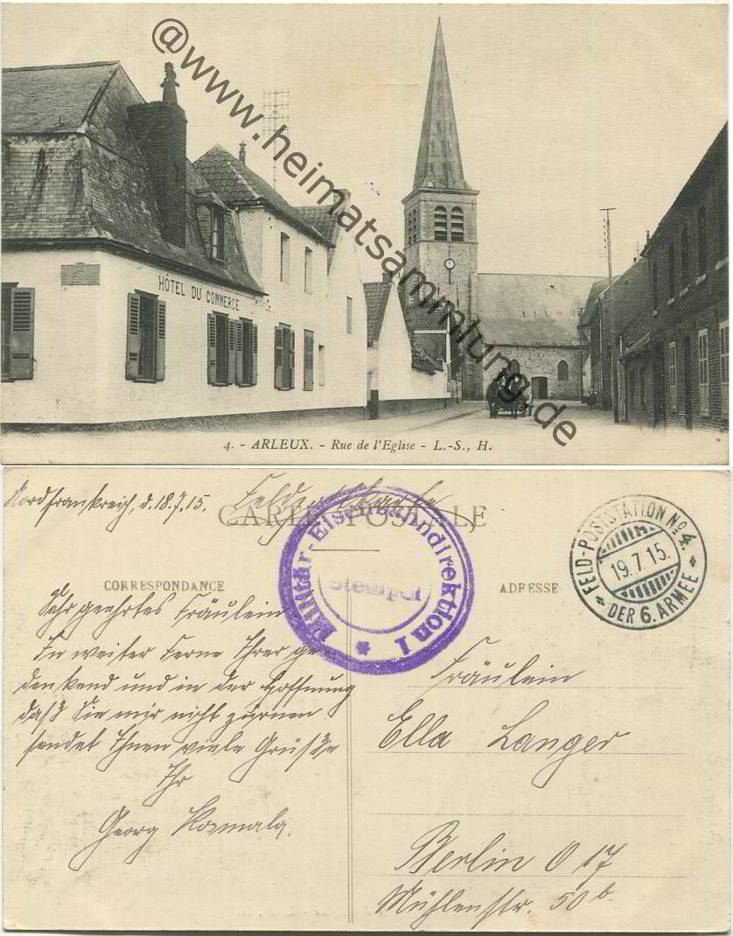 @www.heimatsammlung.de
HÔTEL DU COMMERCE
4. - ARLEUX. - Rue de l'Eglise - L.-S., H.
Nordfrankreich, d. 18.7.15.
Feldpostkarte
CARTE POSTALE
Militär-Eisenbahndirektion I
Stempel
FELD-POSTSTATION No 4.
19.7.15.
DER 6. ARMEE
CORRESPONDANCE
ADRESSE
Sehr geehrtes Fräulein
In weiter Ferne Ihrer ge-
denkend und in der Hoffnung
daß Sie mir nicht zürnen
sendet Ihnen viele Grüße
Ihr
Georg
Fräulein
Ella Langer
Berlin O 17
Mühlenstr. 50b.